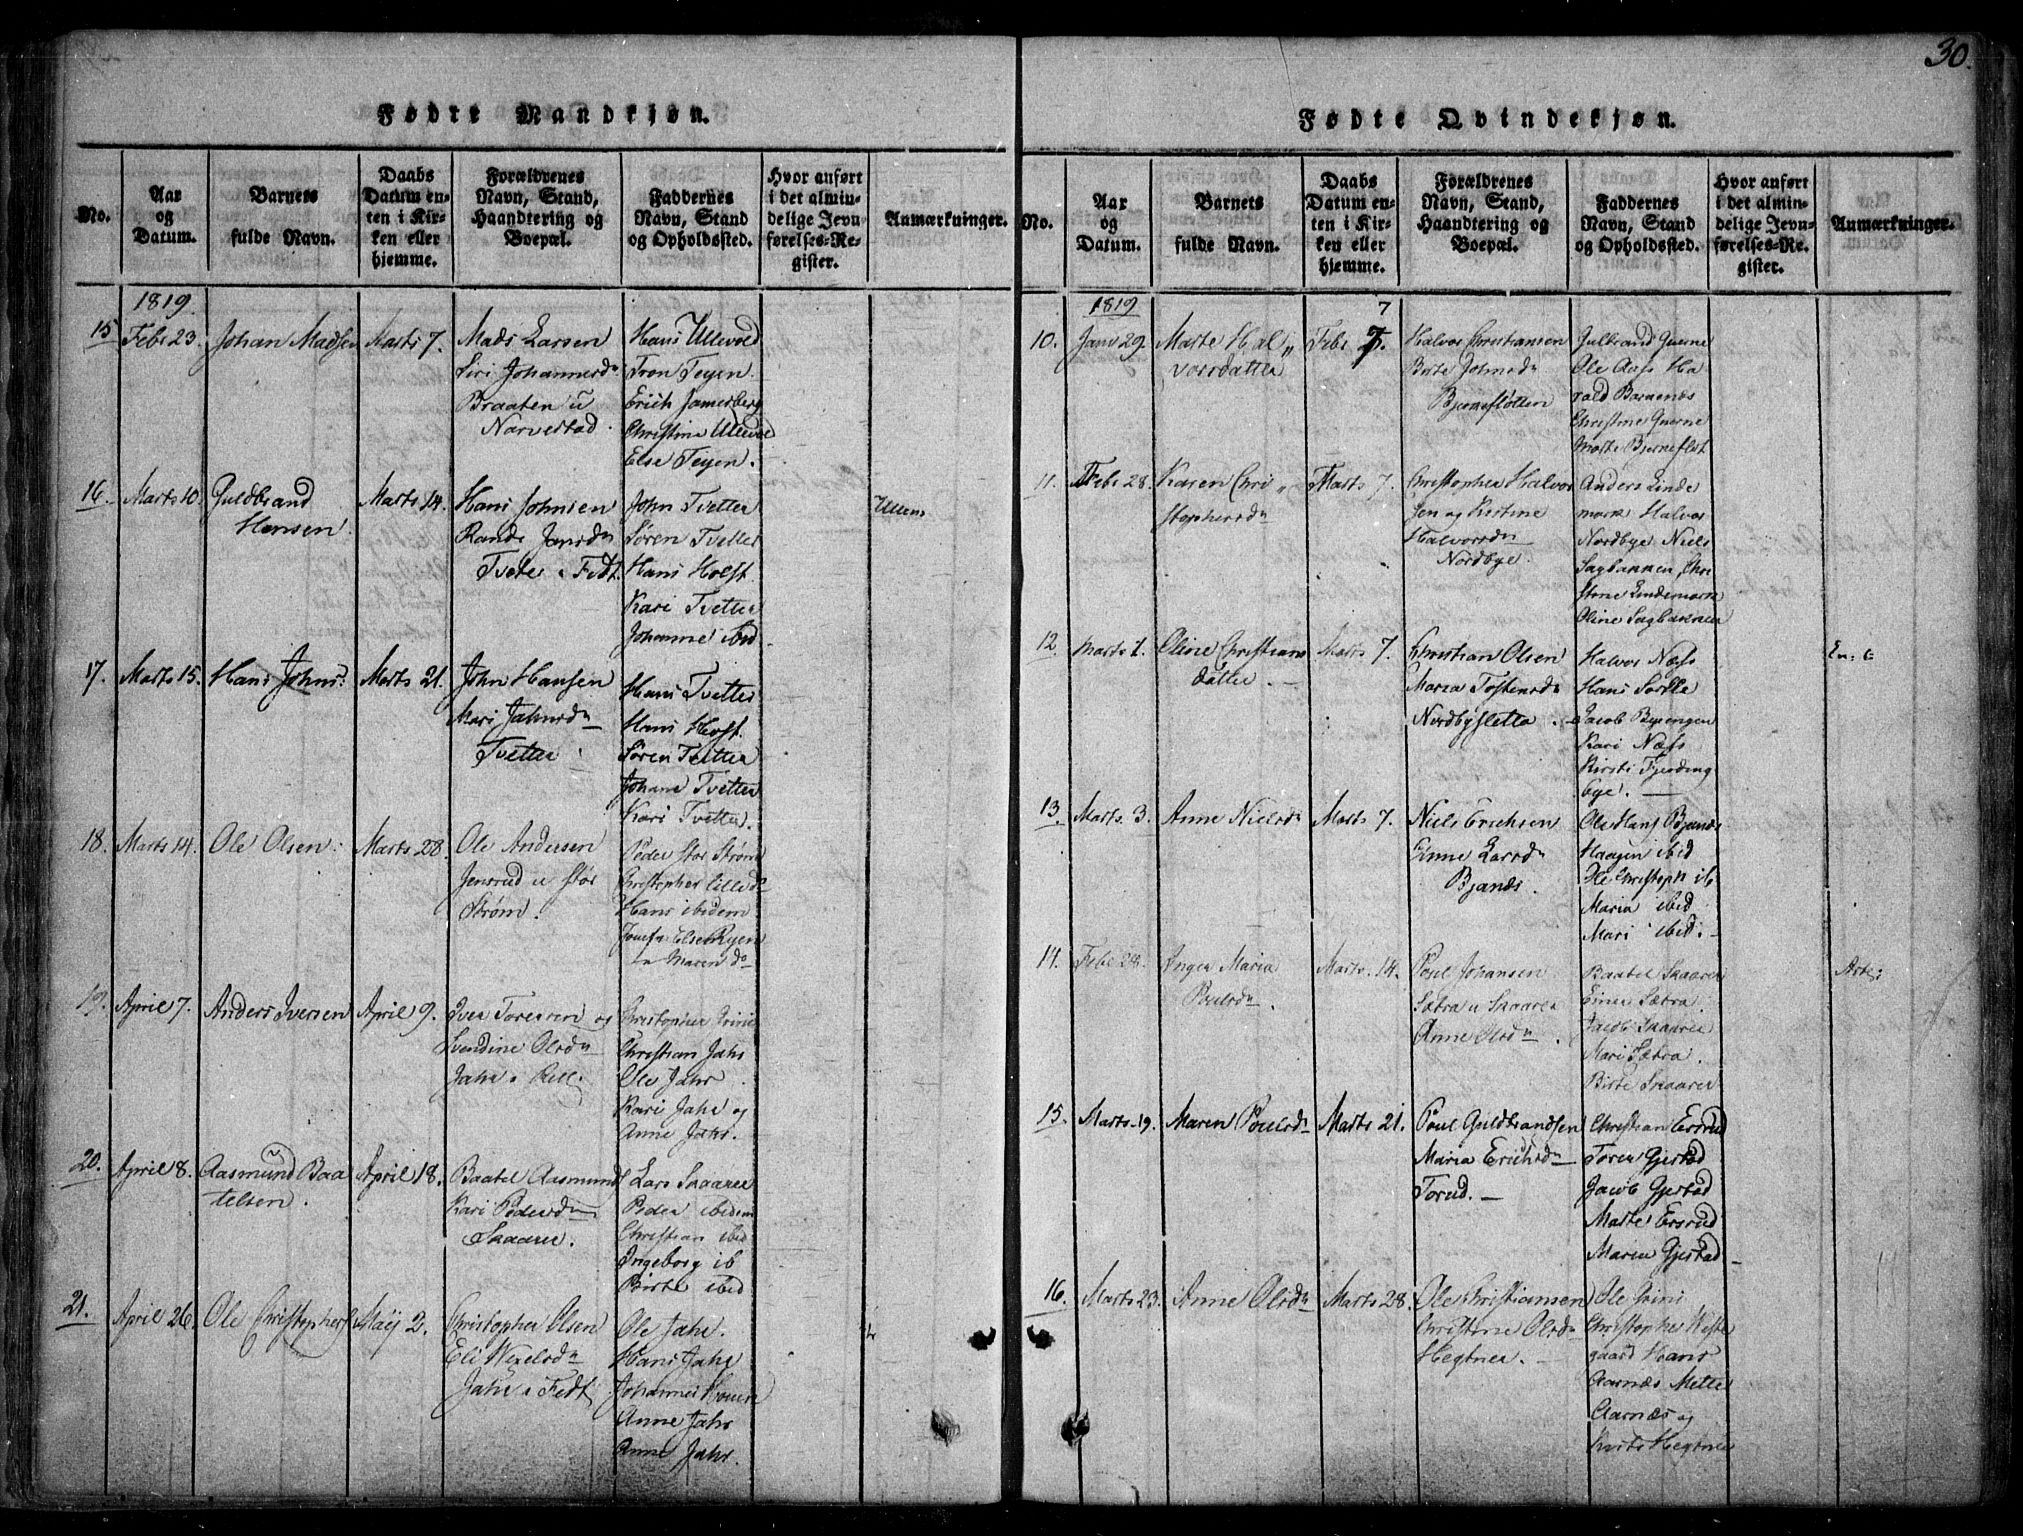 30.
Fødte Mandkjøn.
No.
Aar
og
Datum.
Barnets
fulde Navn.
Daabs
Datum en-
ten i Kir-
ken eller
hjemme.
Forældrenes
Navn, Stand,
Haandtering og
Boepæl.
Faddernes
Navn, Stand
og Opholdssted.
Hvor anført
i det almin-
delige Jevn-
førelses-Re-
gister.
Anmærkninger.
1819.
15 Febr 23. Johan Madsen Marts 7.
Mads Larsen
Siri Johannesdn
Braaten u
Narvestad.
Hans Ullevold
Tron Teyen
Erich Jamerberg
Christine Ullevol
Else Teyen.
16. Marts 10. Guldbrand
Hansen.
Marts 14.
Hans Johnsen
Rande Jansdn
Tvete i Fedt.
John Tvetter
Søren Tvetter
Hans Holst.
Kari Tvetter
Johanne ibid
Ullens
17. Marts 15. Hans Johns: Marts 21.
John Hansen
Mari Jahnsdn
Tvetter
Hans Tvetter
Hans Holst.
Søren Tvetter
Johane Tvetter
Kari Tvetter.
18. Marts 14. Ole Olsen: Marts 28.
Ole Andersen
Jensrud u Stør
Strøm.
Peder stor Strøm
Christopher Lille do
Hans ibidem
Jomfr Else Ryen
Maren do
19. April 7. Anders Iversen April 9.
Iver Toresen og
Svendine Olsdn
Jahr i
Christopher
Christian Jahr
Ole Jahr
Kari Jahr og
Anne Jahr.
20. April 8. Aasmund Baa
telsen.
April 18.
Baatel Aasmunds
Kari Pedersdn
Skaarer.
Lars Skaarer
Peder ibidem
Christian ibid
Ingeborg ib
Birte ibid
21. April 26. Ole Christophers Maij 2.
Christopher Olsen
Eli Nexelsdn
Jahr i Fedt
Ole Jahr.
Hans Jahr
Johannes
Anne Jahr
Anne Jahr.
Fødte Qvindekjøn.
No.
Aar
og
Datum.
Barnets
fulde Navn.
Daabs
Datum en-
ten i Kir-
ken eller
hjemme.
Forældrenes
Navn, Stand,
Haandtering og
Boepæl.
Faddernes
Navn, Stand
og Opholdssted.
Hvor anført
i det almin-
delige Jevn-
førelses-Re-
gister.
Anmærkninger.
1819
7
10. Janv 29. Marte Hal„
vorsdatter
Febr 7.
Halvor Christiansen
Birte Johnsdn
Bjerneflotten
Gulbrand Guerne
Ole Aas Ha
rald Barnenes
Christine Guerne
Marte Bjerneflot
11. Febr 28. Karen Chri„
stophersdn
Marts 7.
Christopher Halvor
sen og Kirstine
Halvorsdn
Nordbye.
Anders Linde
mark Halvor
Nordbye Niels
Sagbakken, Chri
stine Lindemark
Oline Sagbakken
12. Marts 1. Oline Christians
datter.
Marts 7.
Christian Olsen
Maria Tostensdn
Nordbysletta
Halvor Næss
Hans Sørlle
Jacob Byeengen
Kari Næss
Kirsti Fjerding
bye.
13. Marts 3. Anne Nielsdn Marts 7.
Niels Erichsen
Anne Larsdn
Bjanes.
Ole Hans Bjanes
Haagen ibid
Ole Christoph ib
Maria ibid
Mari ibid.
14. Febr 24. Inger Maria
Poulsdn.
Marts 14.
Poul Johansen
Sætra u Skaarer
Anne Olsdn.
Baatel Skaarer
Einer Sætra
Jacob Skaarer
Mari Sætra.
Birte Skaarer
15. Marts 19. Maren Poulsdn Marts 21.
Poul Guldbrandsen
Maria Erichsdn
Torud.
Christian Ersrud
Toren Gjestad
Jacob Gjestad
Marte Ersrud
Maren Gjestad
16. Marts 23. Anne Olsdn Marts 28.
Ole Christiansen
Christine Olsdn
Hegtner.
Ole Grini
Christopher Veste
gaard Hans
Aarnæs Mette
Aarnæs og
Hegtner